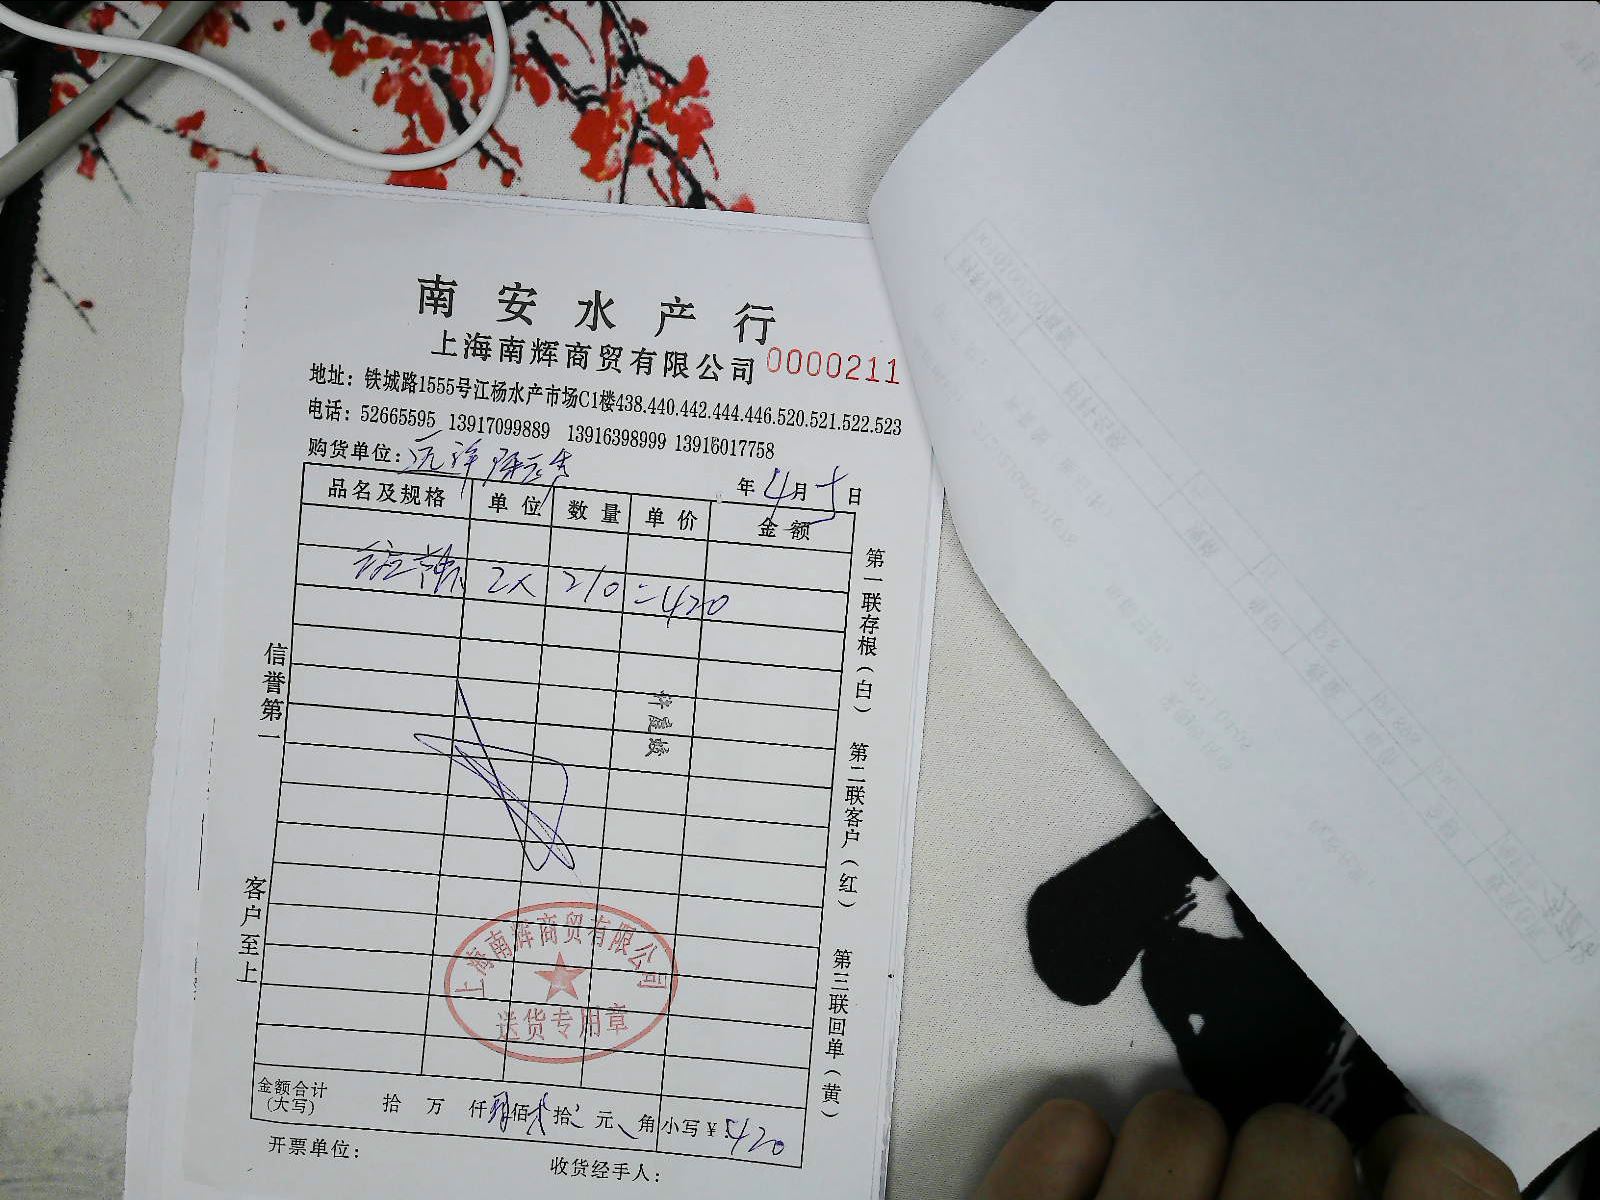 南安水产行
上海南辉商贸有限公司 0000211
地址：铁城路1555号江杨水产市场C1楼438.440.442.444.446.520.521.522.523
电话：52665595 13917099889 13916398999 13916017758
购货单位：远洋
年 4月 5日
品名及规格 单位 数量 单价 金额
2x 210 = 420
信誉第一
客户至上
第一联存根（白）
第二联客户（红）
第三联回单（黄）
上海南辉商贸有限公司
送货专用章
金额合计 拾 万 仟 肆佰 贰拾 元 角 小写￥：420
(大写)
开票单位： 收货经手人：